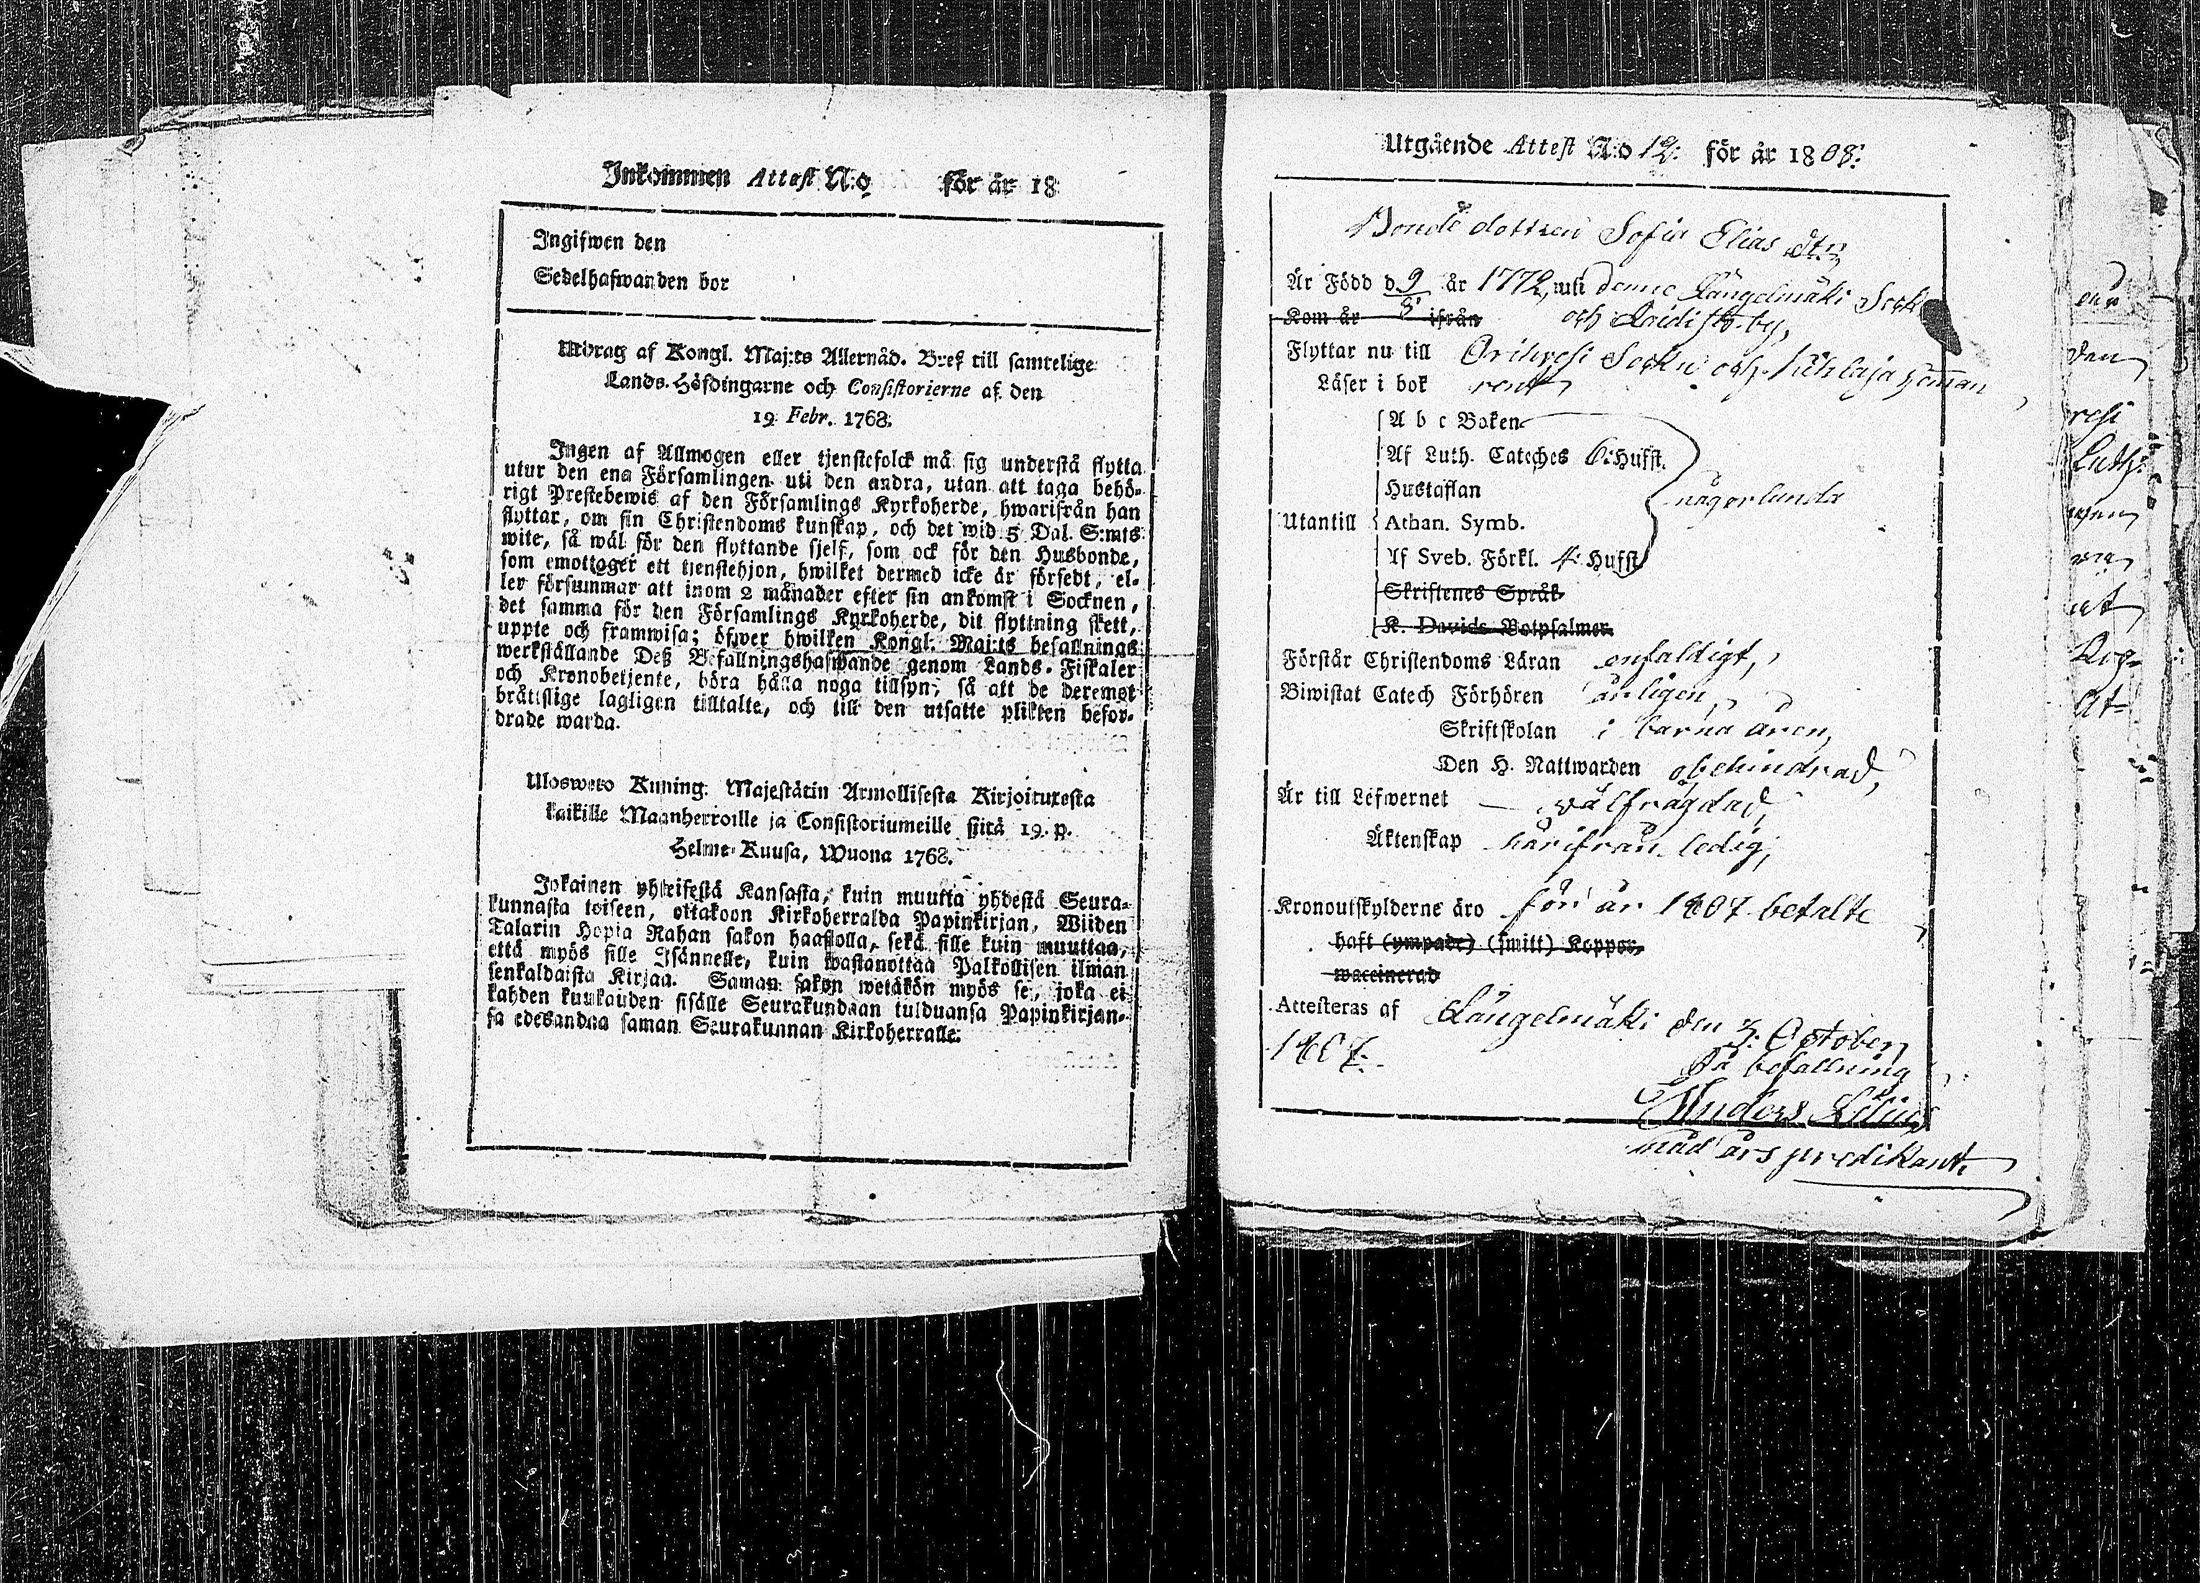 Inkommen Attest N:o för år 18
Ingifwen den
Sedelhafwanden bor
Utdrag af Kongl. Maj:ts Allernåd. Bref till samtelige
Lands-Höfdingarne och Consistorierne af den
19 Febr. 1768.
Ingen af Allmogen eller tjenstefolck må sig understå flytta
utur den ena Församlingen uti den andra, utan att taga behö-
rigt Prestebewis af den Församlings Kyrkoherde, hwarifrån han
flyttar, om sin Christendoms kunskap, och det wid 5 Dal. S:mts
wite, så wäl för den flyttande sjelf, som ock för den Husbonde,
som emottager ett tjenstehjon, hwilket dermed icke är försedt, el-
ler försummar att inom 2 månader efter sin ankomst i Socknen,
det samma för den Församlings Kyrkoherde, dit flyttning skett,
uppte och framwisa; öfwer hwilken Kongl. Maj:ts befallnings
werkställande Deß Befallningshafwande genom Lands-Fiskaler
och Kronobetjente, böra hålla noga tillsyn, så att de deremot
bråttslige lagligen tilltalte, och till den utsatte plikten befor-
drade warda.
Ulosweto Kuning. Majestätin Armollisesta Kirjoituxesta
kaikille Maanherroille ja Consistoriumeille siitä 19. p.
Helme-Kuusa, Wuona 1768.
Jokainen yhteisestä Kansasta, kuin muutta yhdestä Seura-
kunnasta toiseen, ottakoon Kirkoherralda Papinkirjan, Wiiden
Talarin Hopia Rahan sakon haastolla, sekä sille kuin muuttaa,
että myös sille Isännelle, kuin wastanottaa Palkollisen ilman
senkaldaista Kirjaa. Saman sakon wetäkön myös se, joka ei
kahden kuukauden sisälle Seurakundaan tulduansa Papinkirjan-
sa edesandaa saman Seurakunnan Kirkoherralle.
Utgående Attest N:o 12: för år 1808:
Bonde dottren Sofia Elias dtr
Är Född d 9/8 år 1772, uti denne Längelmäki Sockn
Kom år ifrån och by,
Flyttar nu till Orihvesi Sockn och heman
Läser i bok rent,
A b c Boken
Af Luth. Cateches 6: Hufst.
Hustaflan någorlunda
Utantill Athan. Symb.
Af Sveb. Förkl. 4: Hufst
Skriftenes Språk
K. Davids Botpsalmer
Förstår Christendoms Läran enfaldigt,
Biwistat Catech Förhören årligen,
Skriftskolan i barna åren,
Den H. Nattwarden obehindrad,
Är till Lefwernet välfrägdad,
Äktenskap härifrån ledig,
Kronoutskylderne äro för år 1807 betalte
haft (ympade) (smitt) Koppor,
waccinerad
Attesteras af Längelmäki den 3: October
1807.
På befallning
Anders
nåd års predikant.
den
resi
Luth: